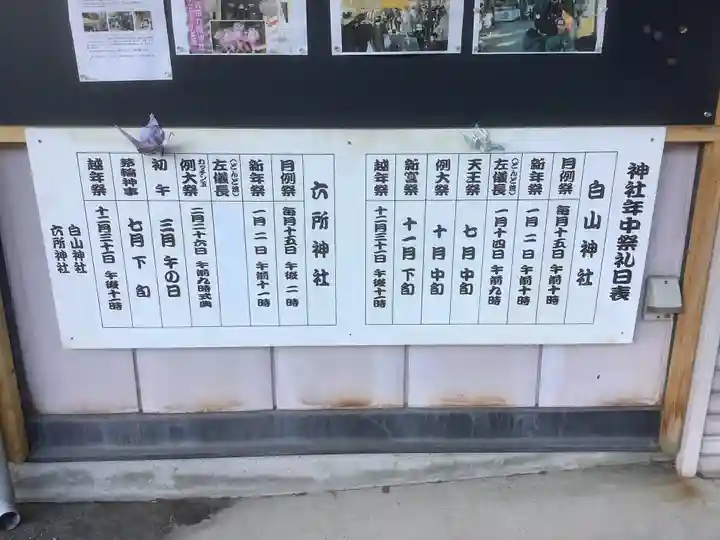 神社年中祭礼日表
白山神社
月例祭 毎月十五日 午前十時
新年祭 一月一日 午前十時
左儀長(どんど焼) 一月十四日 午前九時
天王祭 七月中旬
例大祭 十月中旬
新宮祭 十一月下旬
越年祭 十二月三十一日 午後十一時
六所神社
月例祭 毎月十五日 午後二時
新年祭 一月二日 午前十一時
左儀長(どんど焼)
例大祭 カッチン玉 二月二十六日 午前九時式典
初午 三月午の日
茅輪神事 七月下旬
越年祭 十二月三十一日 午後十一時
白山神社
六所神社